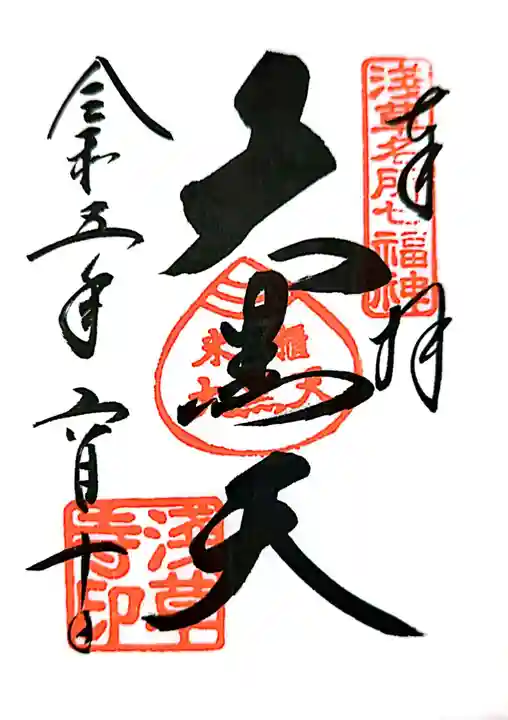 淺草名所七福神
奉拝
大黒天
米櫃
大黒天
令和五年六月十日
淺草寺印